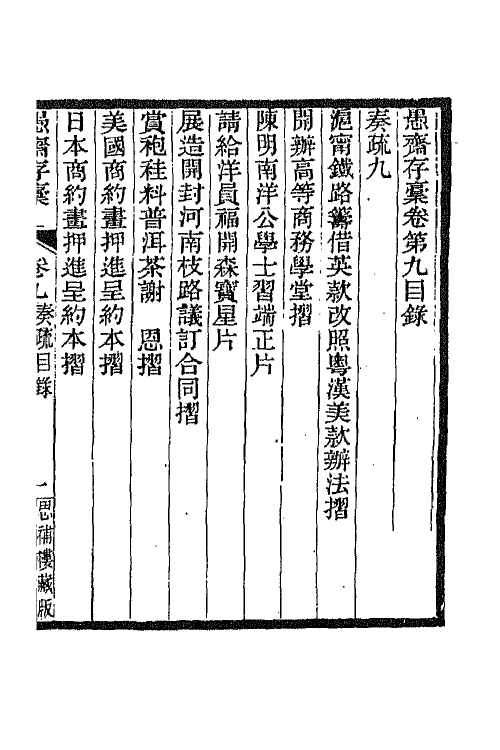 愚齋存稾卷第九目錄
奏疏九
滬甯鐵路籌借英款改照粵漢美款辦法摺
開辦高等商務學堂摺
陳明南洋公學士習端正片
請給洋員福開森寶星片
展造開封河南枝路議訂合同摺
賞袍褂料普洱茶謝　恩摺
美國商約畫押進呈約本摺
日本商約畫押進呈約本摺
愚齋存稾　卷九奏疏目錄　一　思補樓藏版